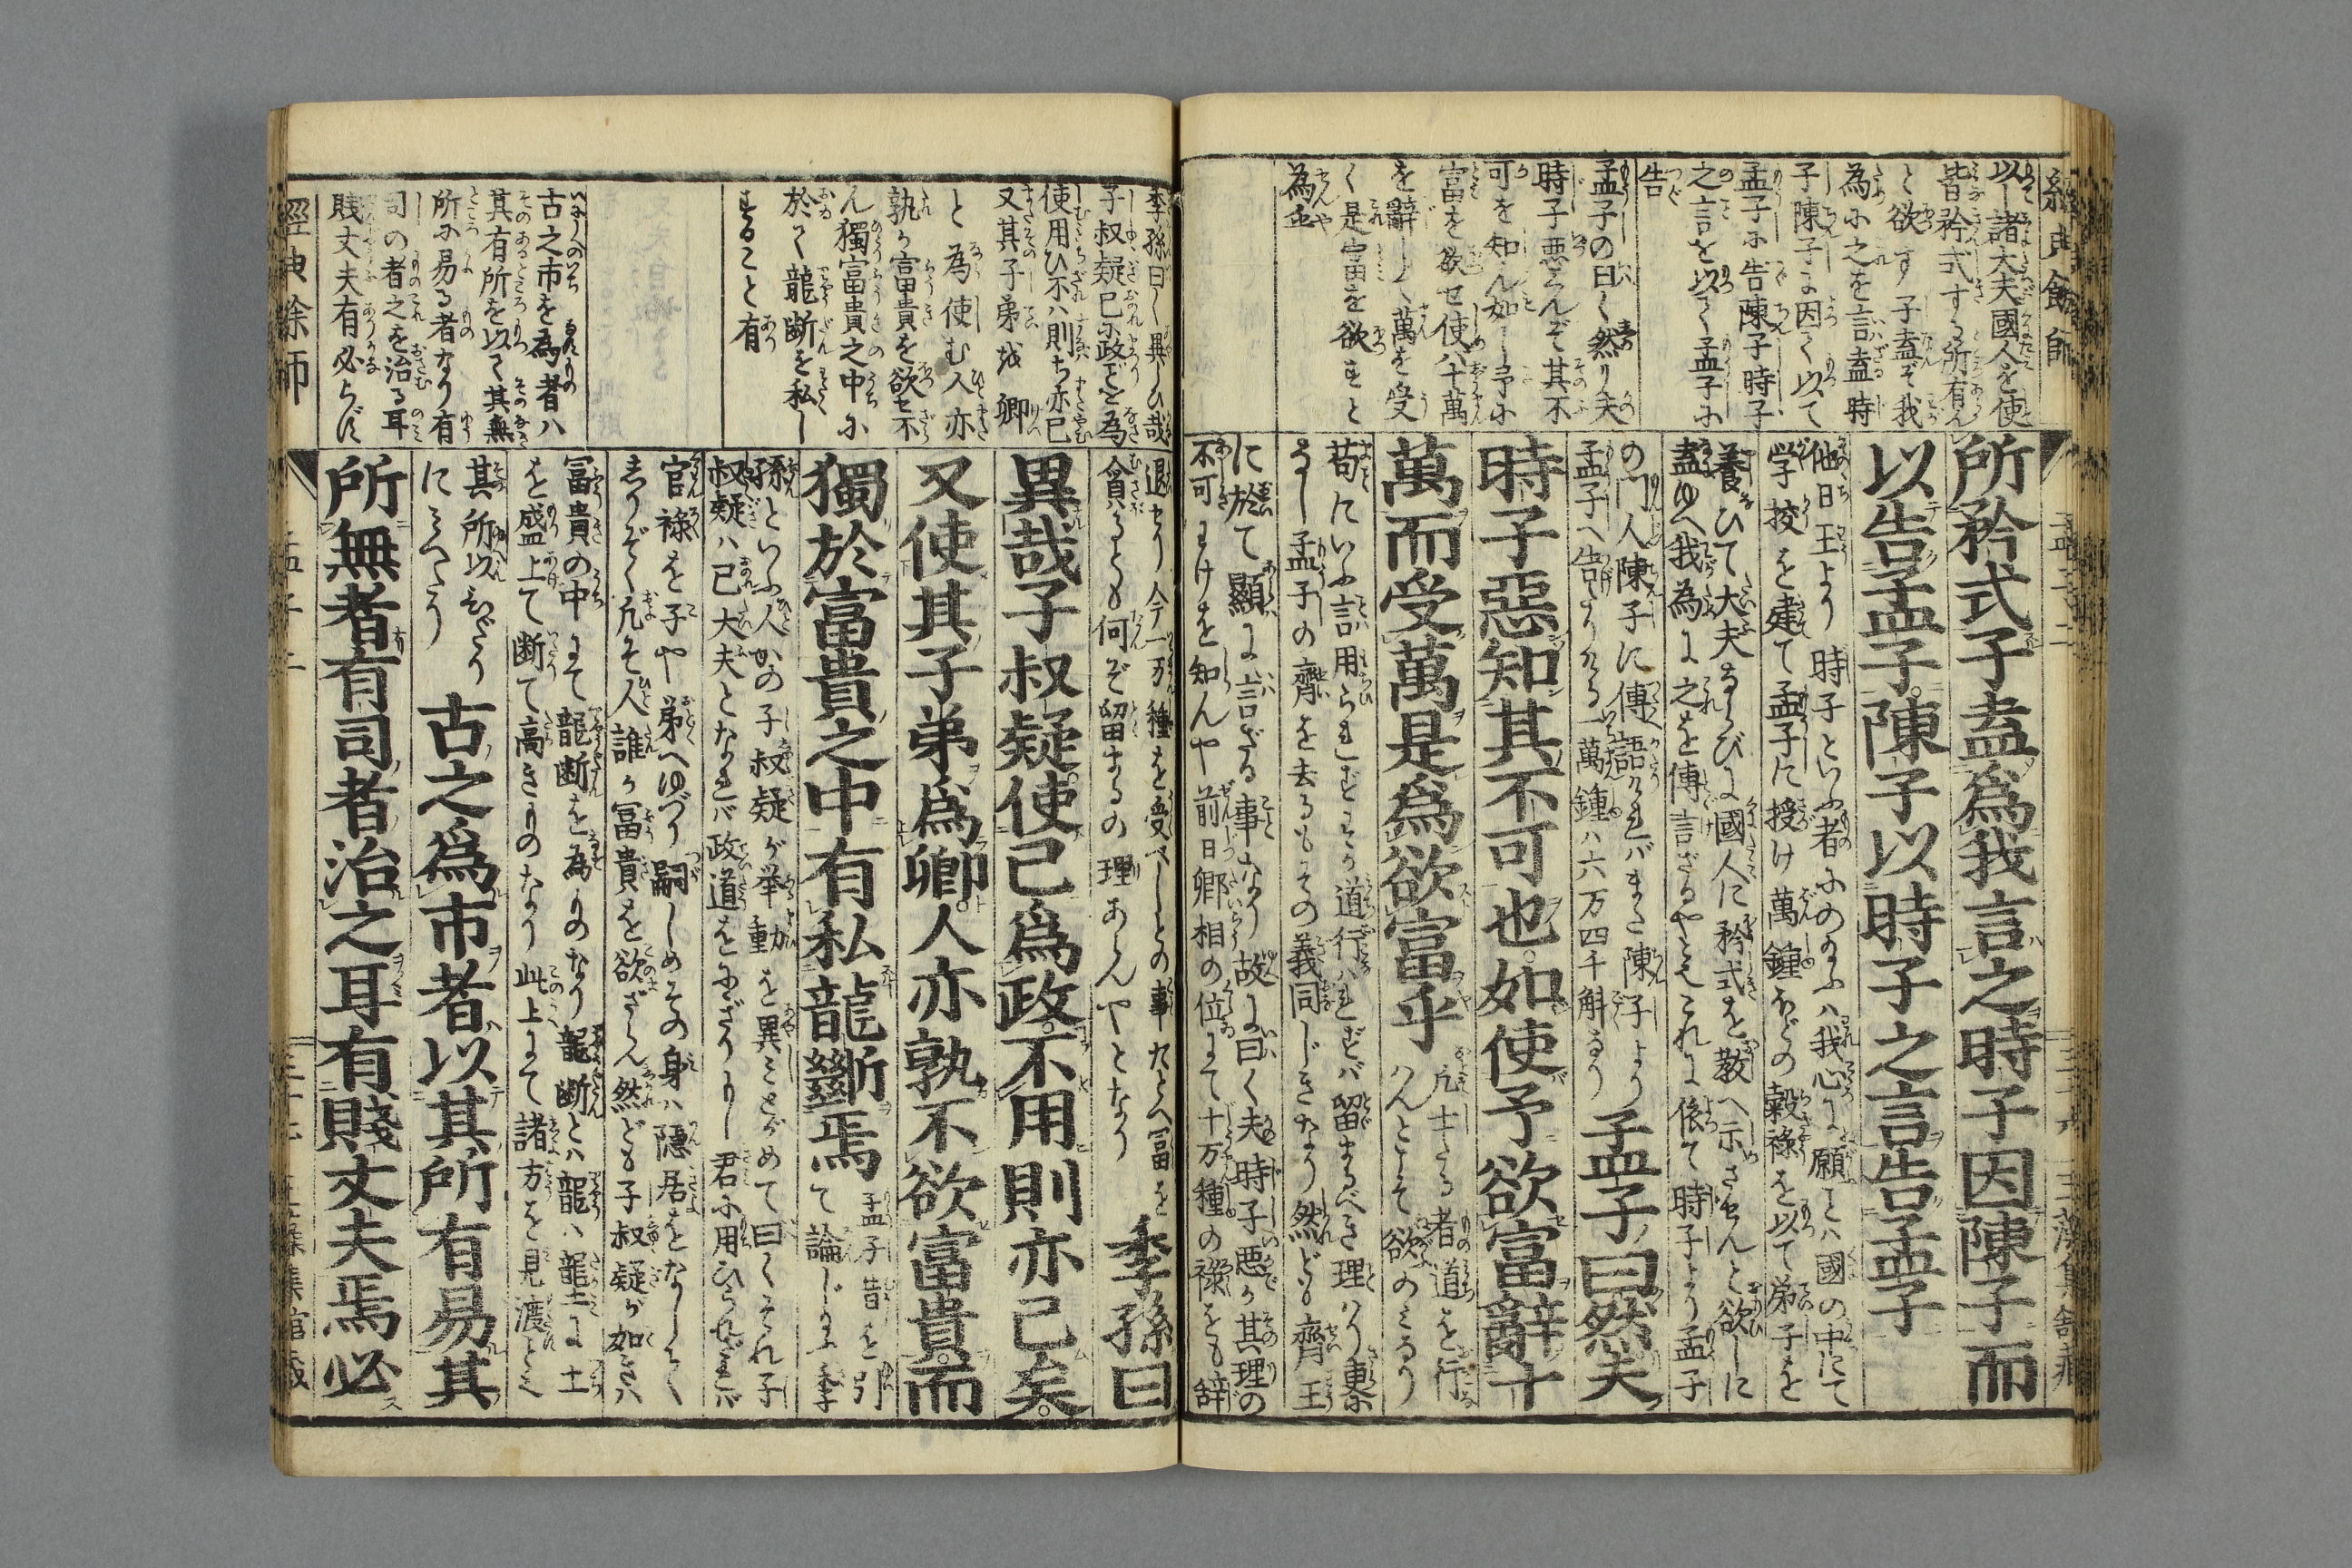 經典餘師
以し諸大夫國人を使
皆矜式する所有ん
と欲す子盍ぞ我
為に之を言盍時
子陳子に因て以て
孟子に告陳子時子
之言を以て孟子に
告
孟子の曰く然り夫
時子悪んぞ其不
可を知ん如し予に
富を欲せ使ハ十萬
を辭して萬を受
く是富を欲すと
為ん乎
所矜式子盍爲我言之時子因陳子而
以告孟子陳子以時子之言告孟子
他日王より時子といふ者にのたまふハ我心に願とハ國の中にて
学校を建て孟子に授け萬鍾ほどの穀祿を以て弟子を
養ひて大夫ならびに國人に矜式を教へ示さしめんと欲しに
盍ゆへ我為に之を傳言ざるやとそこれに依て時子より孟子
の門人陳子に傳語ければまた陳子より
孟子へ告たりける一萬鍾ハ六万四千斛なり
孟子曰然夫
時子惡知其不可也如使予欲富辭十
萬而受萬是爲欲富乎
凡士たる者道を行
はんとこそ欲のみなり
苟にいふ言用られずそが道行ハれずば留まるべき理ハなり
なし孟子の齊を去るもその義同じきなり然ども齊王
に於て顯に言ざる事なり故に曰く夫時子悪か其理の
不可わけを知んや前日卿相の位にて十万種の祿をも辞
孟子二
季孫曰く異ひ哉
子叔疑己に政ごを為
使用ひ不ハ則ち亦已
又其子弟を卿
と為使む人亦
孰か富貴を欲せ不
ん獨富貴之中に
於て龍断を私し
すること有
古之市を為者ハ
其有所を以て其無
所に易る者なり有
司の者之を治る耳
賎丈夫有必らず
退せり今一万種を受べしとの事たとへ冨を
貪るとも何ぞ留まるの理あらんやとなり
季孫曰
異哉子叔疑使己爲政不用則亦已矣
又使其子弟爲卿人亦孰不欲富貴而
獨於富貴之中有私龍斷焉
孟子昔を引
て論じ給ふ季
孫といふ人かの子叔疑が举動を異ミとがめて曰くそれ子
叔疑ハ己大夫となれバ政道をにぎりもし君に用ひられざれバ
官禄を子や弟へゆづり嗣しめその身ハ隠居をなしなく
しりぞく凡そ人誰か冨貴を欲ざらん然ども子叔疑が如きハ
冨貴の中にて龍断を為ものなり龍断とハ龍ハ壟に土
を盛上て断て高きものなり此上にて諸方を見渡とミ
其所以ひだり
にミへたり
古之爲市者以其所有易其
所無者有司者治之耳有賤丈夫焉必
經典餘師
孟子二